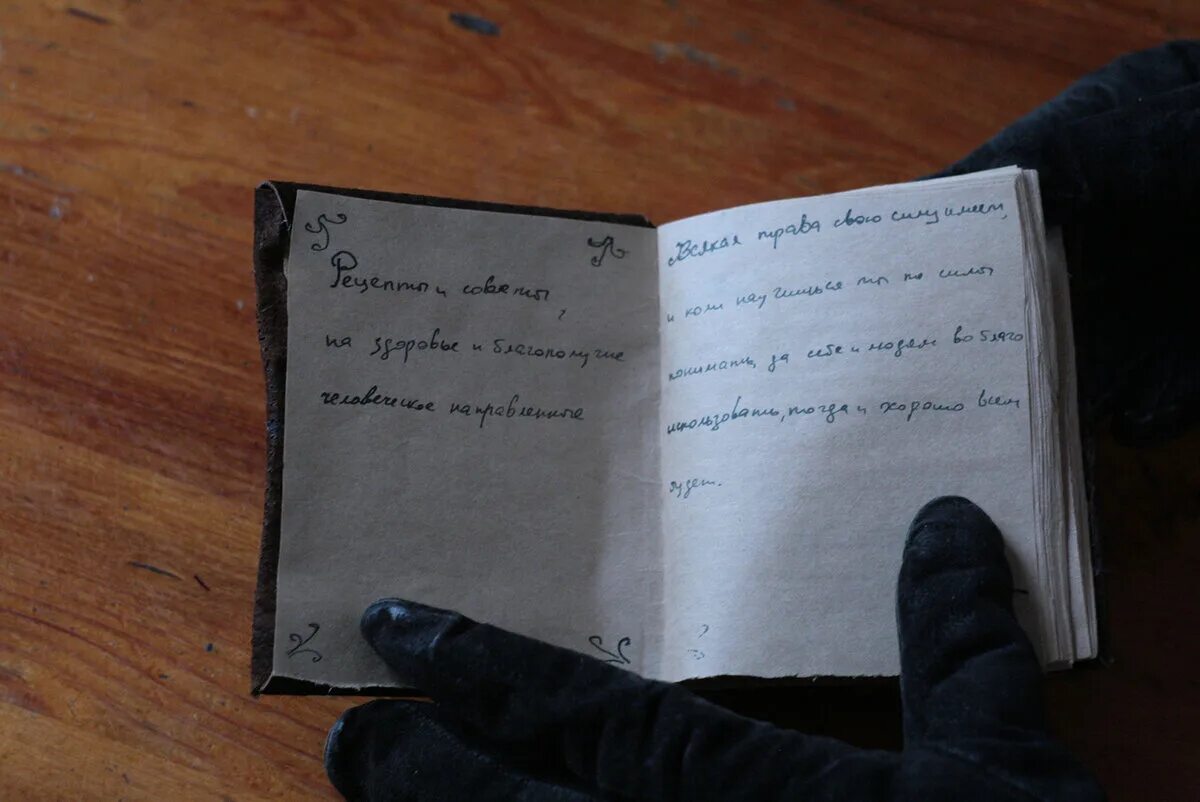 Рецепты и советы,
на здоровье и благополучие
человеческое направленные
Всякая трава свою силу имеет,
и коли научишься ты по силы
понимать, да себе и людям во благо
использовать, тогда и хорошо всем
будет.